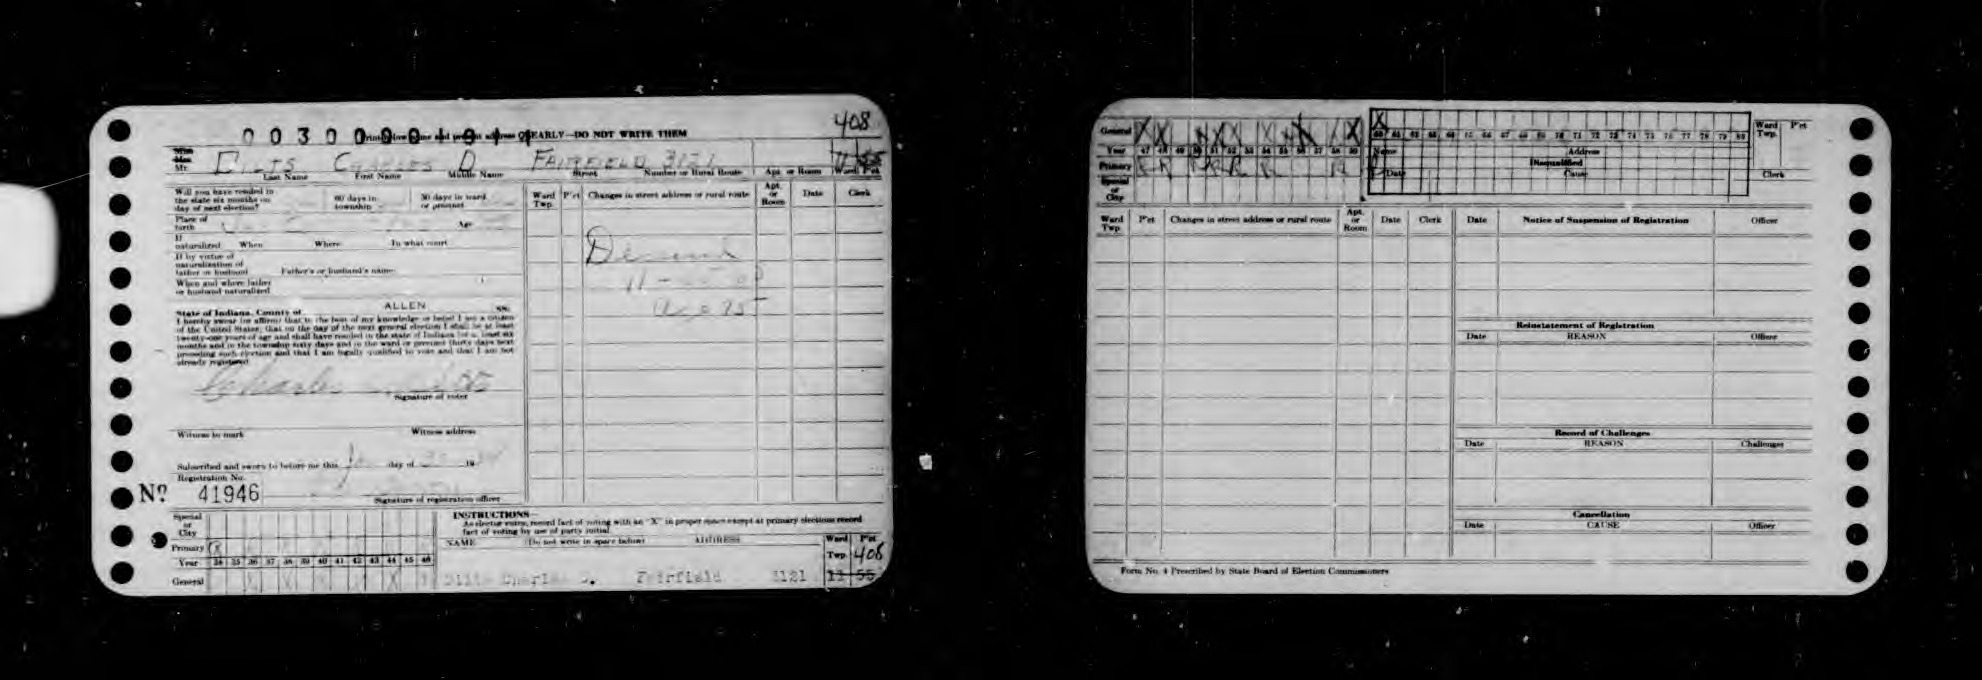 408
0030000
EARLY—DO NOT WRITE THEM
Miss
Mrs.
Mr. DILTS CHARLES D. FAIRFIELD 3121 11 55
Last Name First Name Middle Name Street Number or Rural Route Apt. or Room Ward P'ct
Will you have resided in the state six months on day of next election? 60 days in township 30 days in ward or precinct
Place of birth Age
If naturalized When Where In what court
If by virtue of naturalization of father or husband Father's or husband's name
When and where father or husband naturalized
State of Indiana, County of ALLEN SS:
I hereby swear (or affirm) that to the best of my knowledge or belief I am a citizen
of the United States; that on the day of the next general election I shall be at least
twenty-one years of age and shall have resided in the state of Indiana for at least six
months and in the township sixty days and in the ward or precinct thirty days next
preceding such election and that I am legally qualified to vote and that I am not
already registered.
Charles Dilts
Signature of voter
Witness to mark Witness address
Subscribed and sworn to before me this day of 19
Registration No.
Nº 41946 Signature of registration officer
Ward Twp. P'ct Changes in street address or rural route Apt. or Room Date Clerk
Deceased
Special or City
Primary
Year 34 35 36 37 38 39 40 41 42 43 44 45 46
General
INSTRUCTIONS—
As elector votes, record fact of voting with an "X" in proper space except at primary elections record
fact of voting by use of party initial.
NAME (Do not write in space below) ADDRESS Ward Twp. P'ct 408
Dilts Charles D. Fairfield 3121 11 55
General
Year 47 48 49 50 51 52 53 54 55 56 57 58 59
Primary
Special or City
60 61 62 63 64 65 66 67 68 69 70 71 72 73 74 75 76 77 78 79 80
Name Address
Disqualified
Date Cause
Ward Twp. P'ct
Clerk
Ward Twp. P'ct Changes in street address or rural route Apt. or Room Date Clerk
Date Notice of Suspension of Registration Officer
Reinstatement of Registration
Date REASON Officer
Record of Challenges
Date REASON Challenger
Cancellation
Date CAUSE Officer
Form No. 4 Prescribed by State Board of Election Commissioners